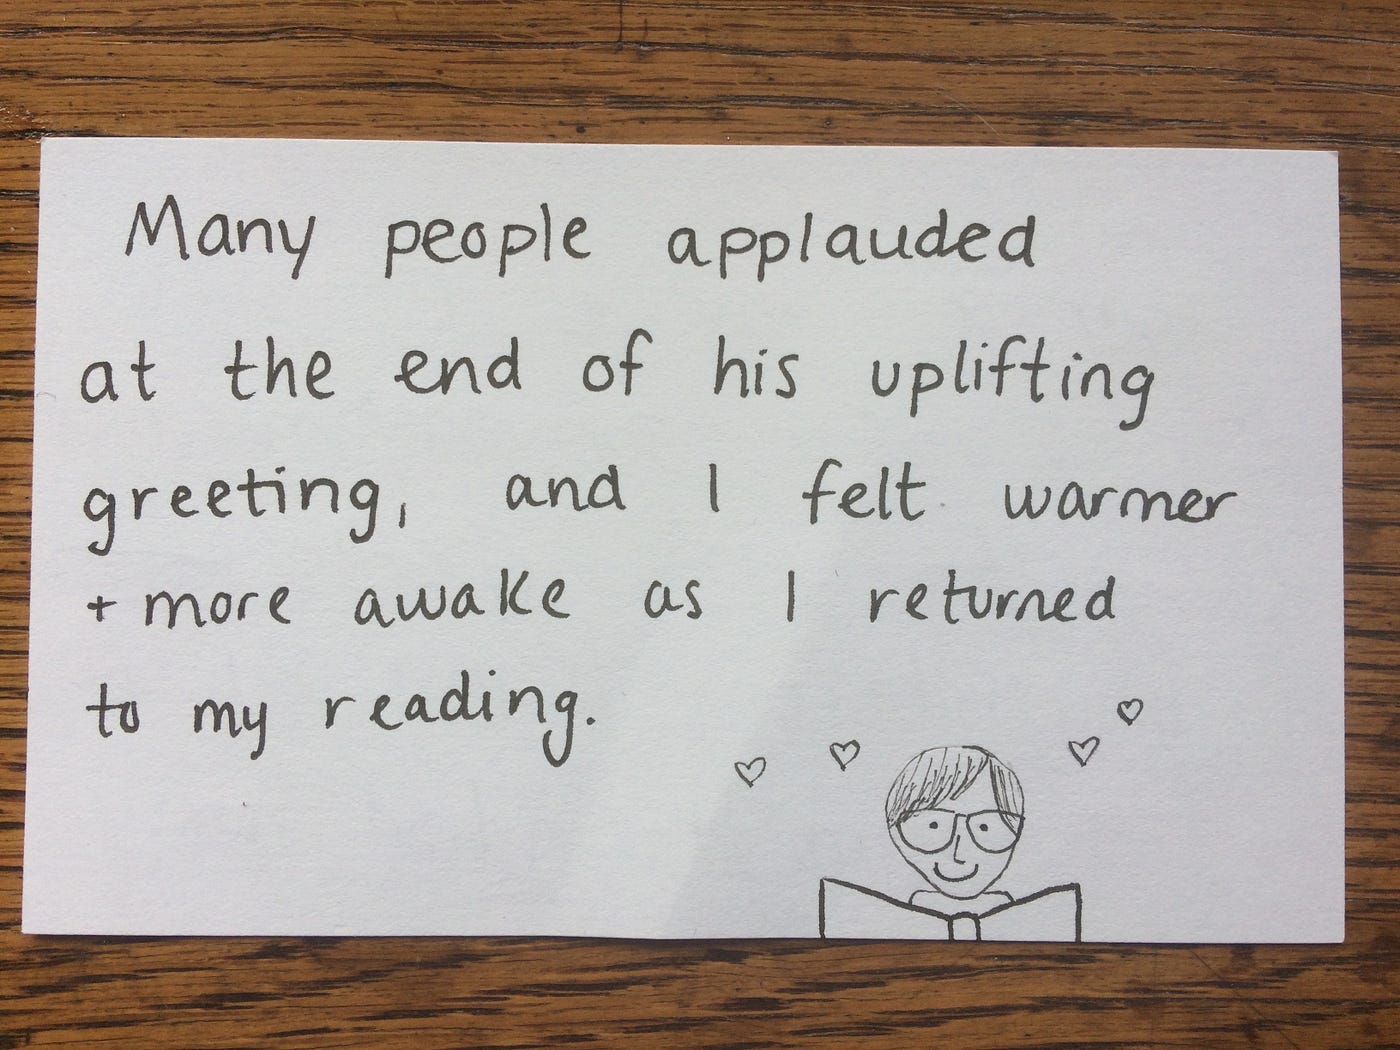 Many people applauded
at the end of his uplifting
greeting, and I felt warmer
+ more awake as I returned
to my reading.